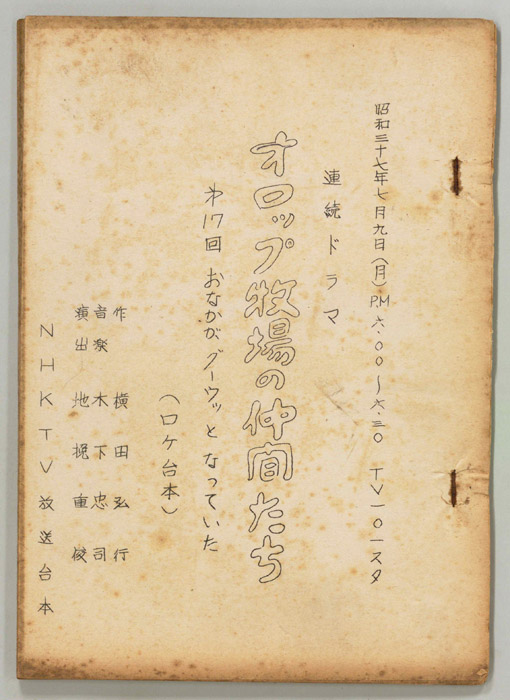 昭和三十七年七月九日(月)P.M六.00〜六.三〇 TV一〇一スタ
連続ドラマ
オロップ牧場の仲間たち
第17回 おなかがグーウッとなっていた
(ロケ台本)
作 横田弘行
音楽 木下忠司
演出 地挽重俊
NHKTV放送台本